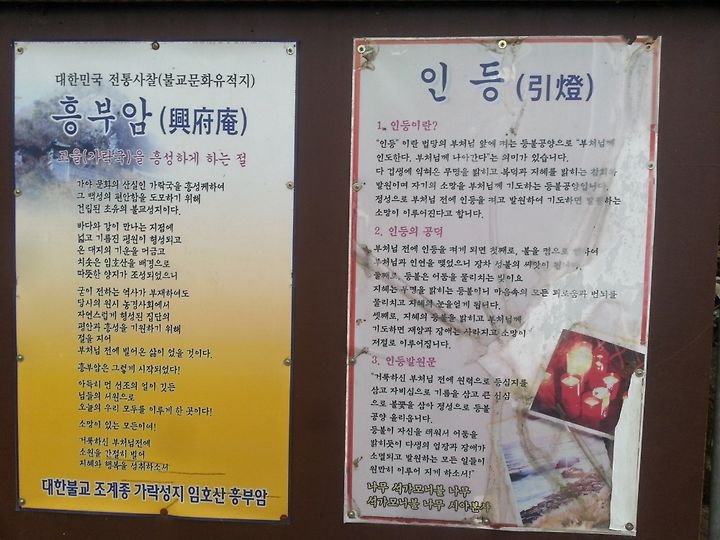 대한민국 전통사찰(불교문화유적지)
흥부암 (興府庵)
고을(가락국)을 흥성하게 하는 절
가야 문화의 산실인 가락국을 흥성케하여
그 백성의 편안함을 도모하기 위해
건립된 초유의 불교성지이다.
바다와 강이 만나는 지점에
넓고 기름진 평원이 형성되고
온 대지의 기운을 머금고
치솟은 임호산을 배경으로
따뜻한 양지가 조성되었으니
굳이 전하는 역사가 부재하여도
당시의 원시 농경사회에서
자연스럽게 형성된 집단의
평안과 흥성을 기원하기 위해
절을 지어
부처님 전에 빌어온 삶이 있을 것이다.
흥부암은 그렇게 시작되었다!
아득히 먼 선조의 얼이 깃든
님들의 서원으로
오늘의 우리 모두를 이루게 한 곳이다!
소망이 있는 모든이여!
거룩하신 부처님전에
소원을 간절히 빌어
지혜와 행복을 성취하소서
대한불교 조계종 가락성지 임호산 흥부암
인 등 (引燈)
1. 인등이란?
"인등" 이란 법당의 부처님 앞에 켜는 등불공양으로 "부처님께
인도한다. 부처님께 나아간다"는 의미가 있습니다.
다 겁생에 익혀온 무명을 밝히고 복덕과 지혜를 밝히는 참회와
발원이며 자기의 소망을 부처님께 기도하는 등불공양입니다.
정성으로 부처님 전에 인등을 켜고 발원하여 기도하면 발원하는
소망이 이루어진다고 합니다.
2. 인등의 공덕
부처님 전에 인등을 켜게 되면 첫째로, 불을 켬으로 인하여
부처님과 인연을 맺었으니 장차 성불의 씨앗이 됩니다.
둘째로, 등불은 어둠을 물리치는 빛이요
지혜는 무명을 밝히는 등불이니 마음속의 모든 괴로움과 번뇌를
물리치고 지혜의 눈을얻게 됩니다.
셋째로, 지혜의 등불을 밝히고 부처님께
기도하면 재앙과 장애는 사라지고 소망이
저절로 이루어집니다.
3. 인등발원문
"거룩하신 부처님 전에 원력으로 등심지를
삼고 자비심으로 기름을 삼고 큰 신심
으로 불꽃을 삼아 정성으로 등불
공양 올리옵니다.
등불이 자신을 태워서 어둠을
밝히듯이 다생의 업장과 장애가
소멸되고 발원하는 모든 일들이
원만히 이루어 지게 하소서!"
나무 석가모니불 나무
석가모니불 나무 시아본사